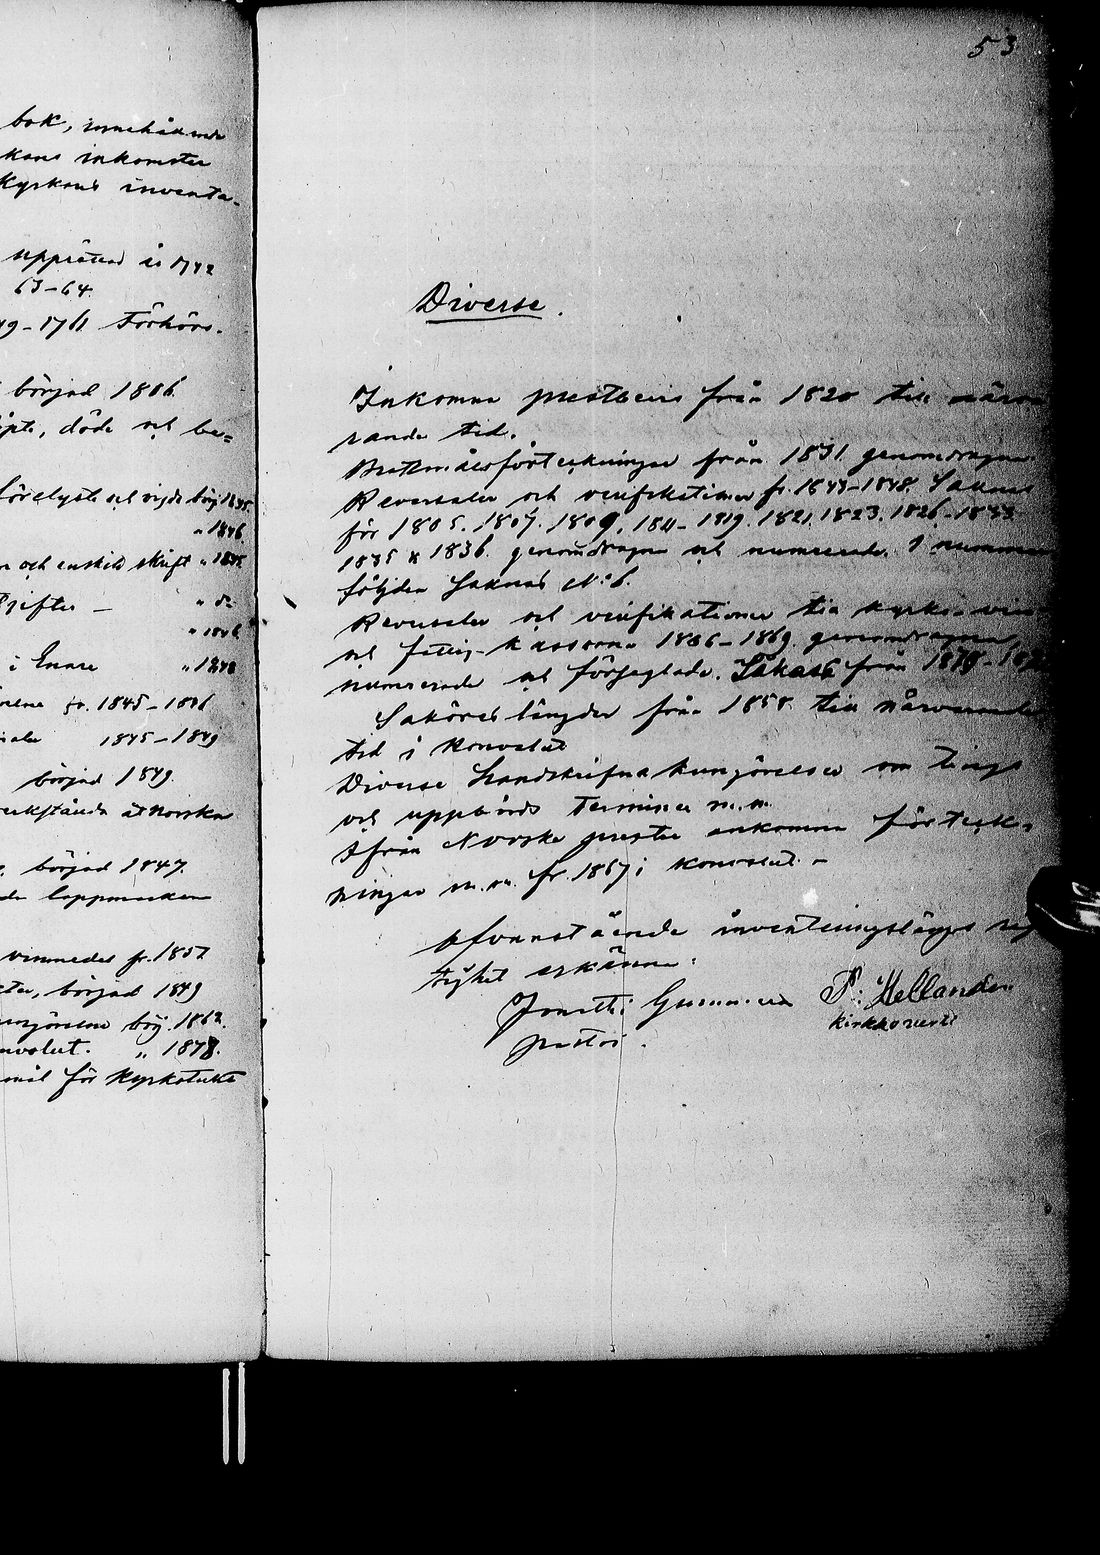 bok, innehållande
kans inkomster
Kyrkans inventa-
upprättad år 1742
63-64.
49-1761 Förhörs-
börjad 1806.
döpte, döde och be=
förelyste och vigde börj. 1835.
" 1846.
och enskild skrift " 1845.
" do
" 1846.
i Enare " 1848
fr. 1845-1846
1845-1849
börjad 1849.
åt Norska
börjad 1847.
lappmarken
vinmedel fr. 1857
börjad 1849
börj. 1862.
konvolut. " 1878.
mål för Kyrkotukt
53
Diverse.
Inkomna prestbevis från 1820 till närva
rande tid.
från 1831 genomdragna.
Reversaler och verifikationer fr. 1843-1848. Saknas
för 1805. 1807. 1809. 1811-1819. 1821. 1823. 1826-1833
1835 & 1836. genomdragna och numrerade. I nummer
följden saknas No 6.
Reversaler och verifikationer till kyrko- vin-
och fattig-kassorna 1836-1869. genomdragna
numrerade och förseglade. Saknas från 1878-
Saköreslängder från 1858 till närvarande
tid i konvolut
Diverse handskrifna kungörelser om tings
och uppbörds terminer m.m.
Ifrån Norske prester ankomna förteck-
ningar m.m. fr. 1867 i konvolut. -
Ofvanstående inventeringslängds rig
tighet erkänna:
P: Hellander
kirkkovärti
pastor.